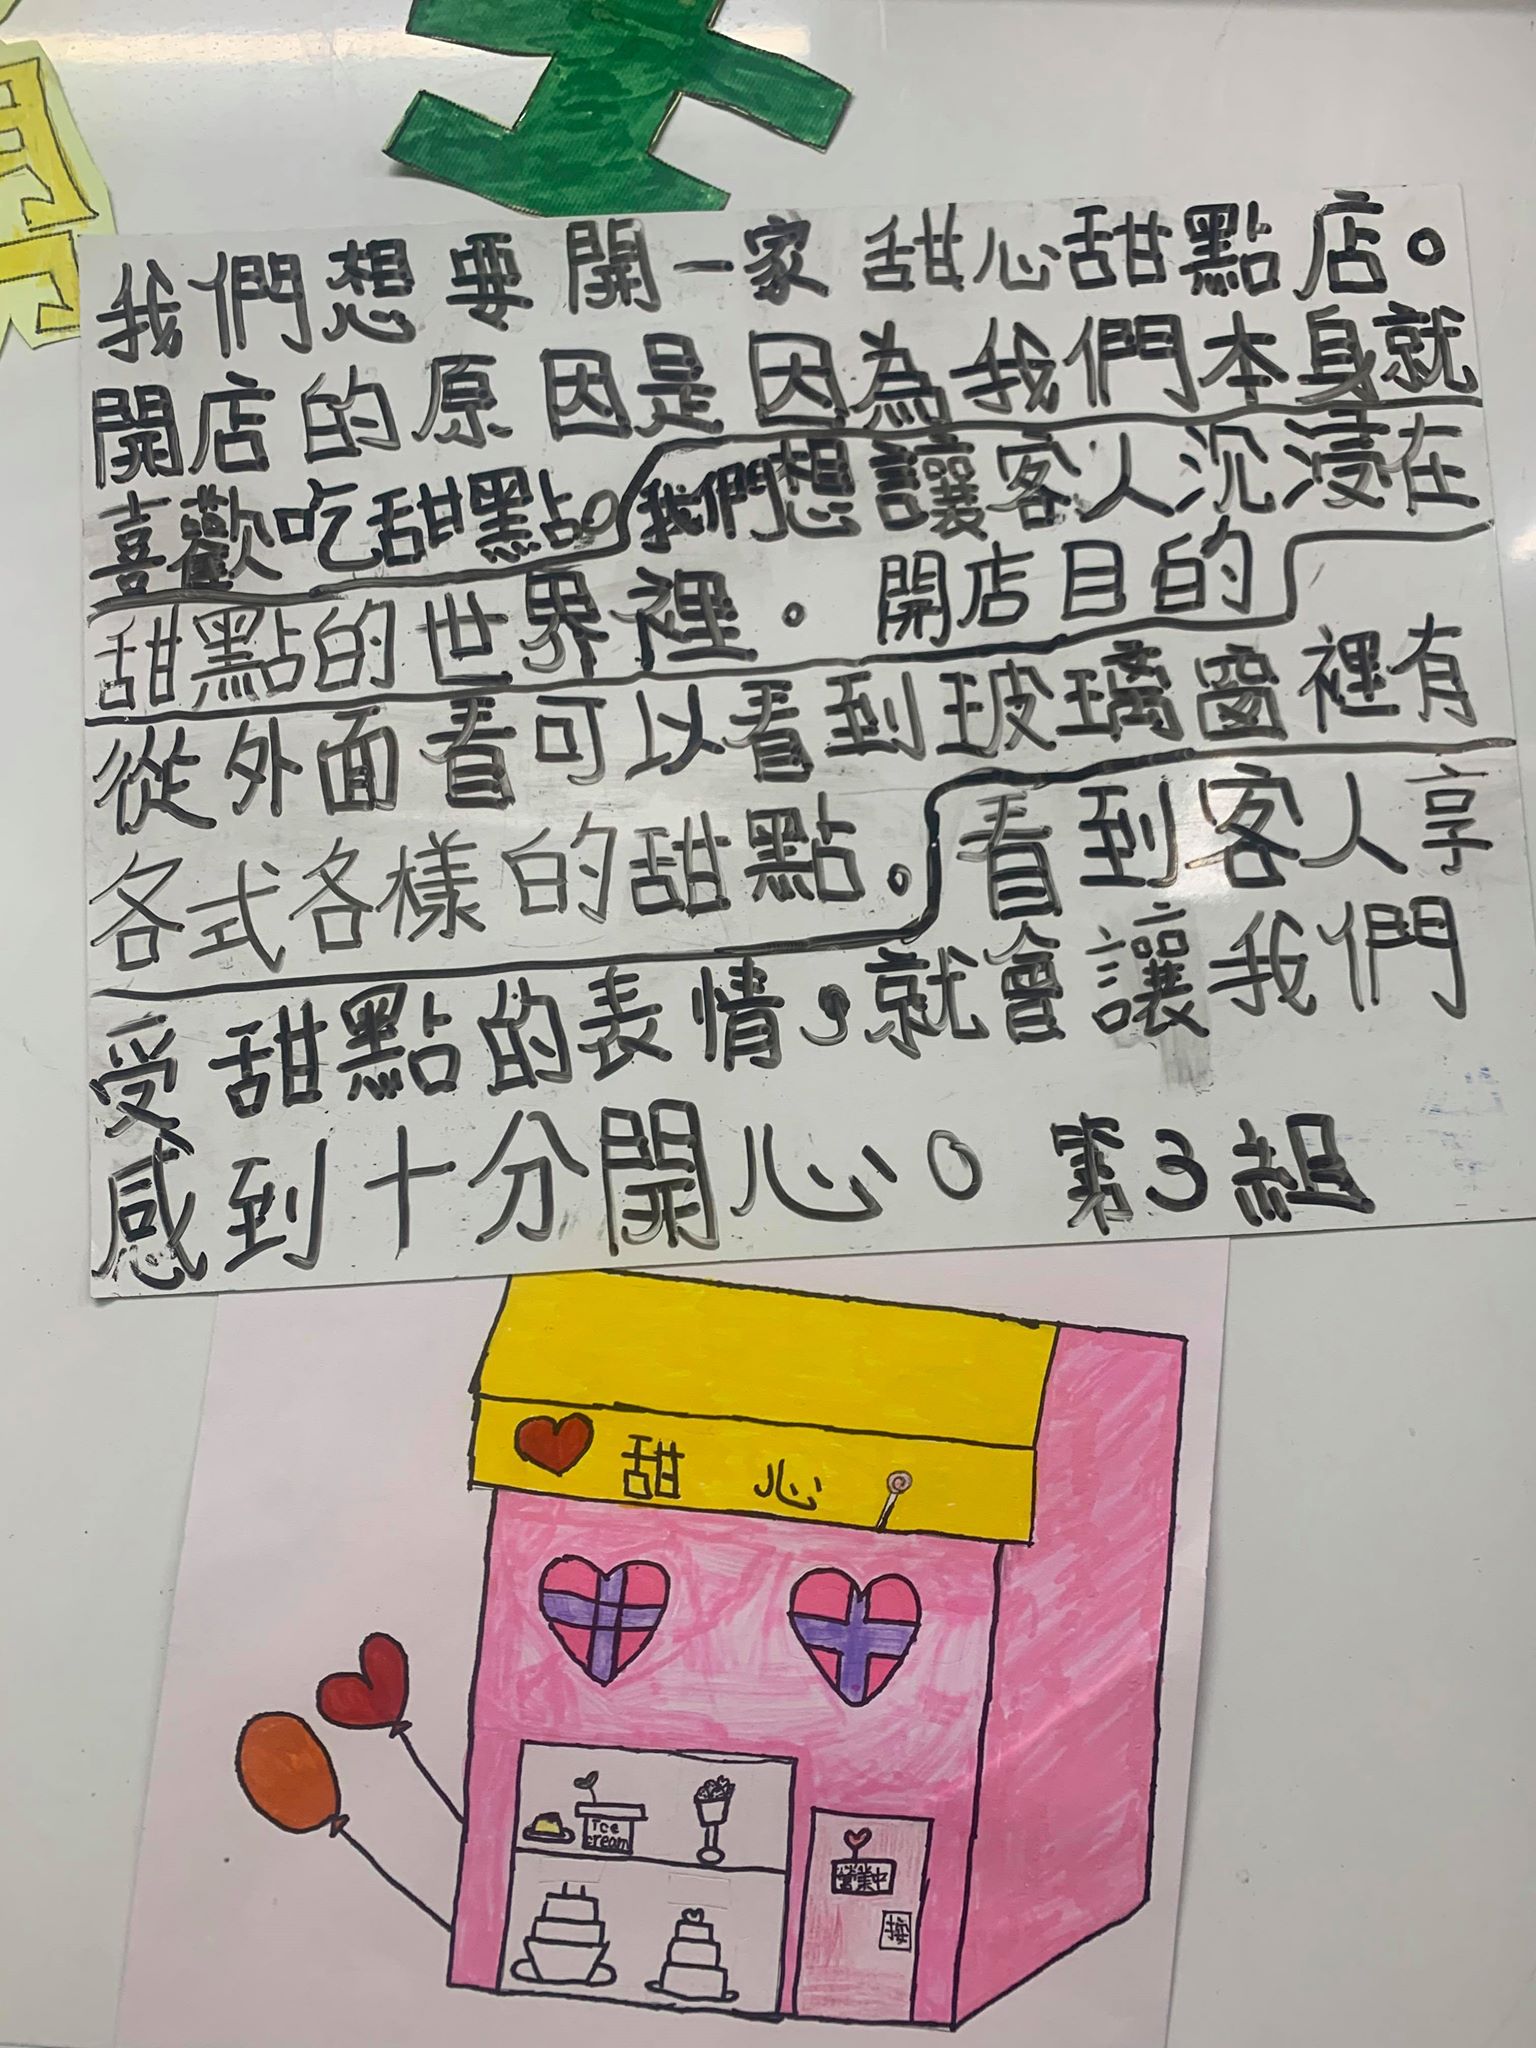 我們想要開一家甜心甜點店。
開店的原因是因為我們本身就
喜歡吃甜點。我們想讓客人沉浸在
甜點的世界裡。開店目的
從外面看可以看到玻璃窗裡有
各式各樣的甜點。看到客人享
受甜點的表情,就會讓我們
感到十分開心。第3組
甜心
Ice
cream
營業中
按